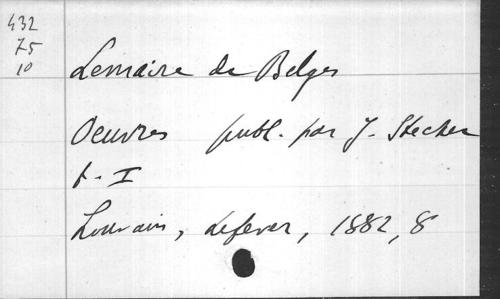 432
75
10
Lemaire de Belges
Oeuvres publ. par J. Stecher
t. I
Louvain, Lefever, 1882, 8